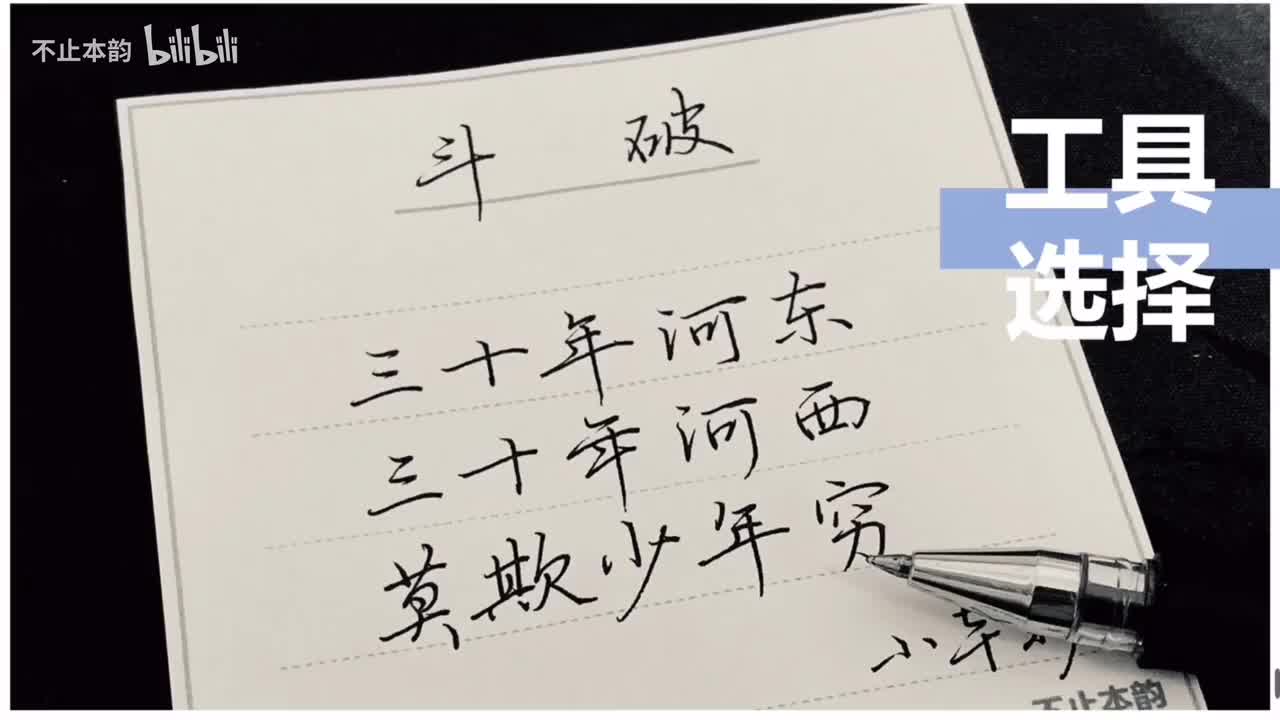 不止本韵 bilibili
工具
选择
斗 破
三十年河东
三十年河西
莫欺少年穷
不止本韵